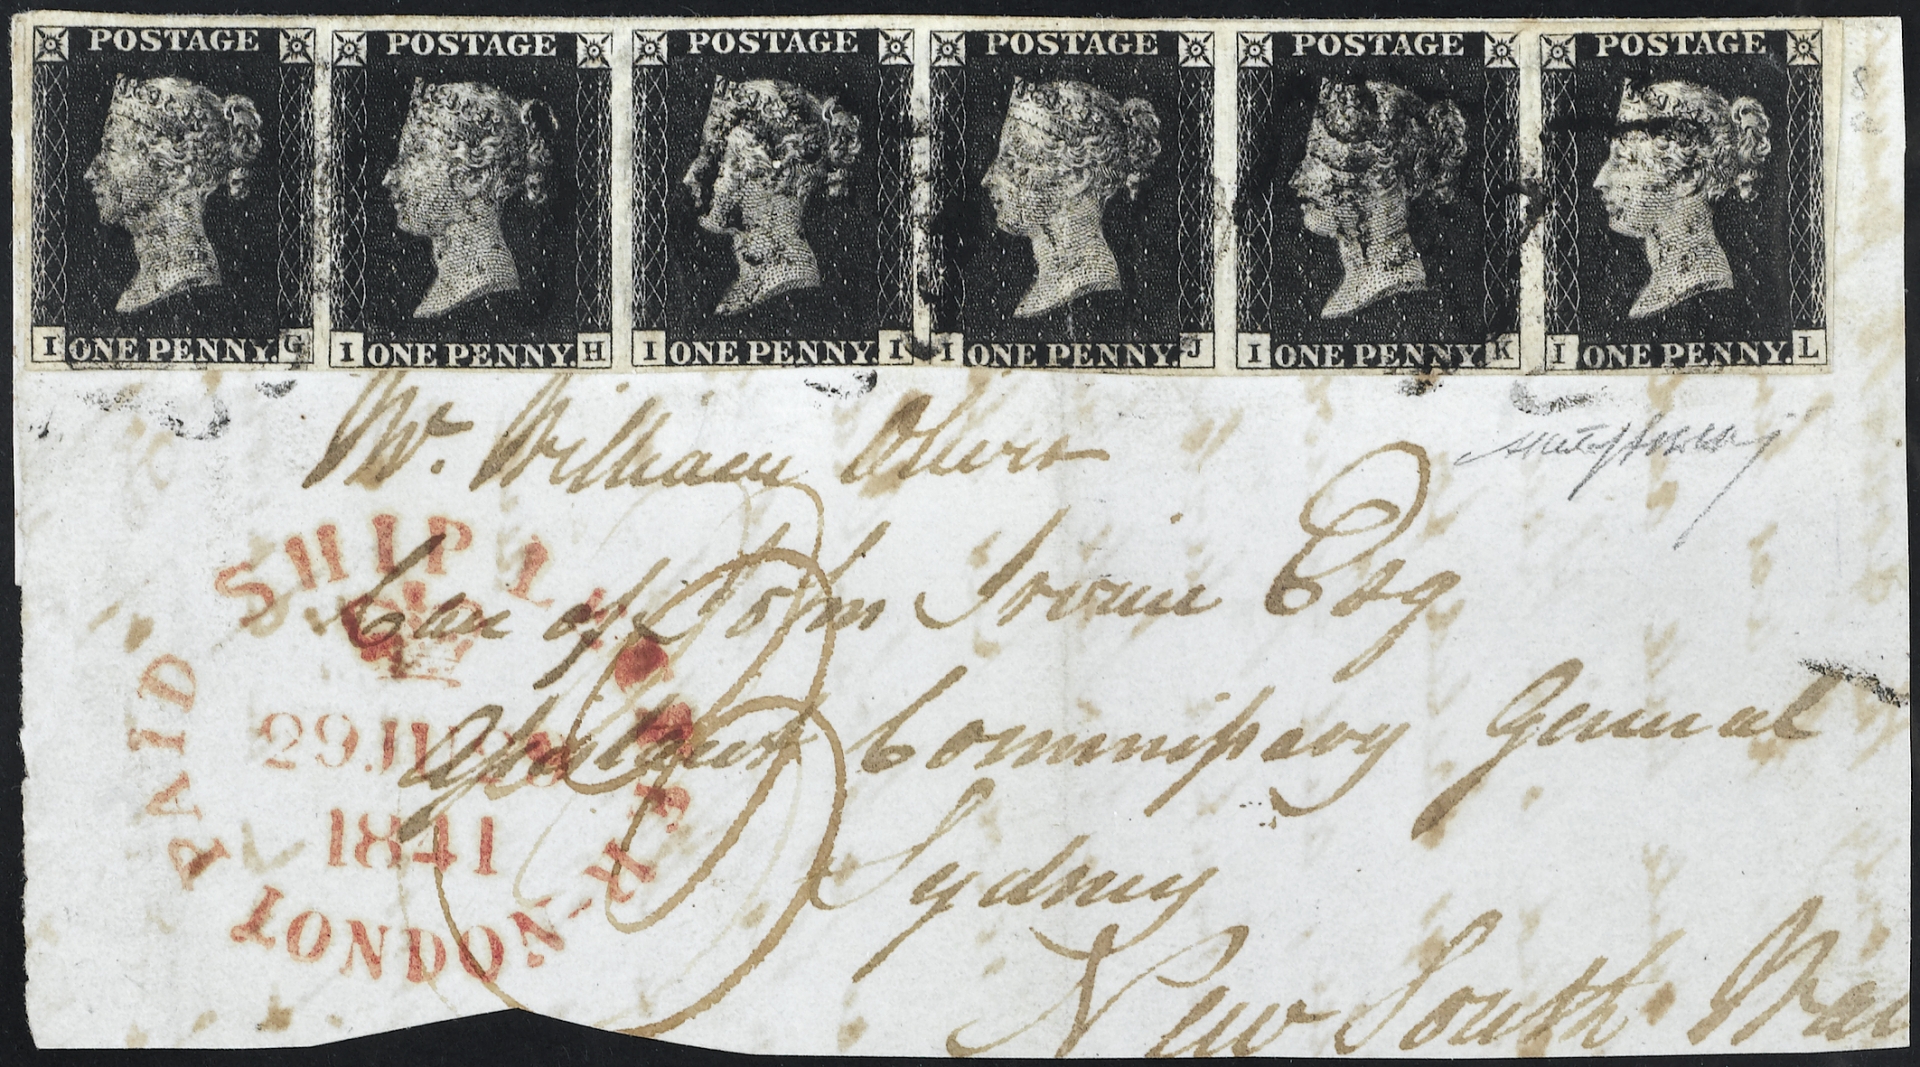 POSTAGE POSTAGE POSTAGE POSTAGE POSTAGE POSTAGE
I ONE PENNY. G I ONE PENNY. H I ONE PENNY. I I ONE PENNY. J I ONE PENNY. K I ONE PENNY. L
Mr. William Oliver
Care of John Irvine Esq
Assistant Commissary General
Sydney
New South Wal
PAID SHIP LETTER LONDON
29 JU 29
1841